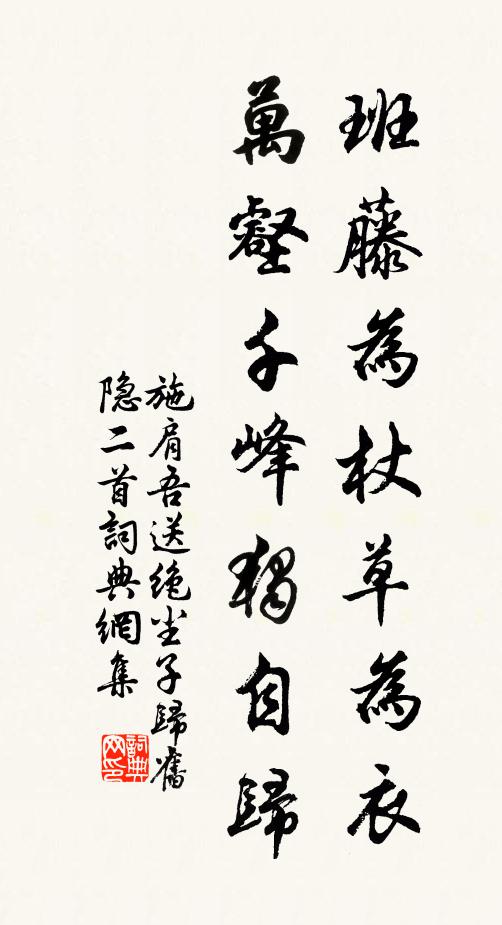 班藤為杖草為衣
萬壑千峰獨自歸
施肩吾送絶尘子歸舊
隐二首詞典網集
詞典
网印